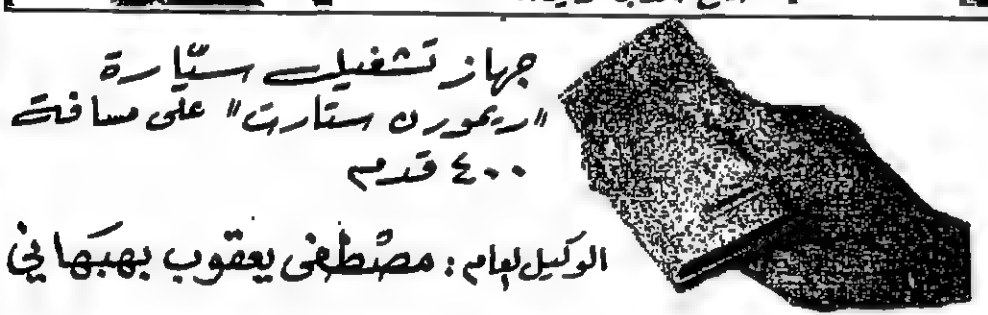 جهاز تشغيل سيّارة
"ريموت ستارت" على مسافة
٤٠٠ قدم
الوكيل لعام : مصطفى يعقوب بهبهاني